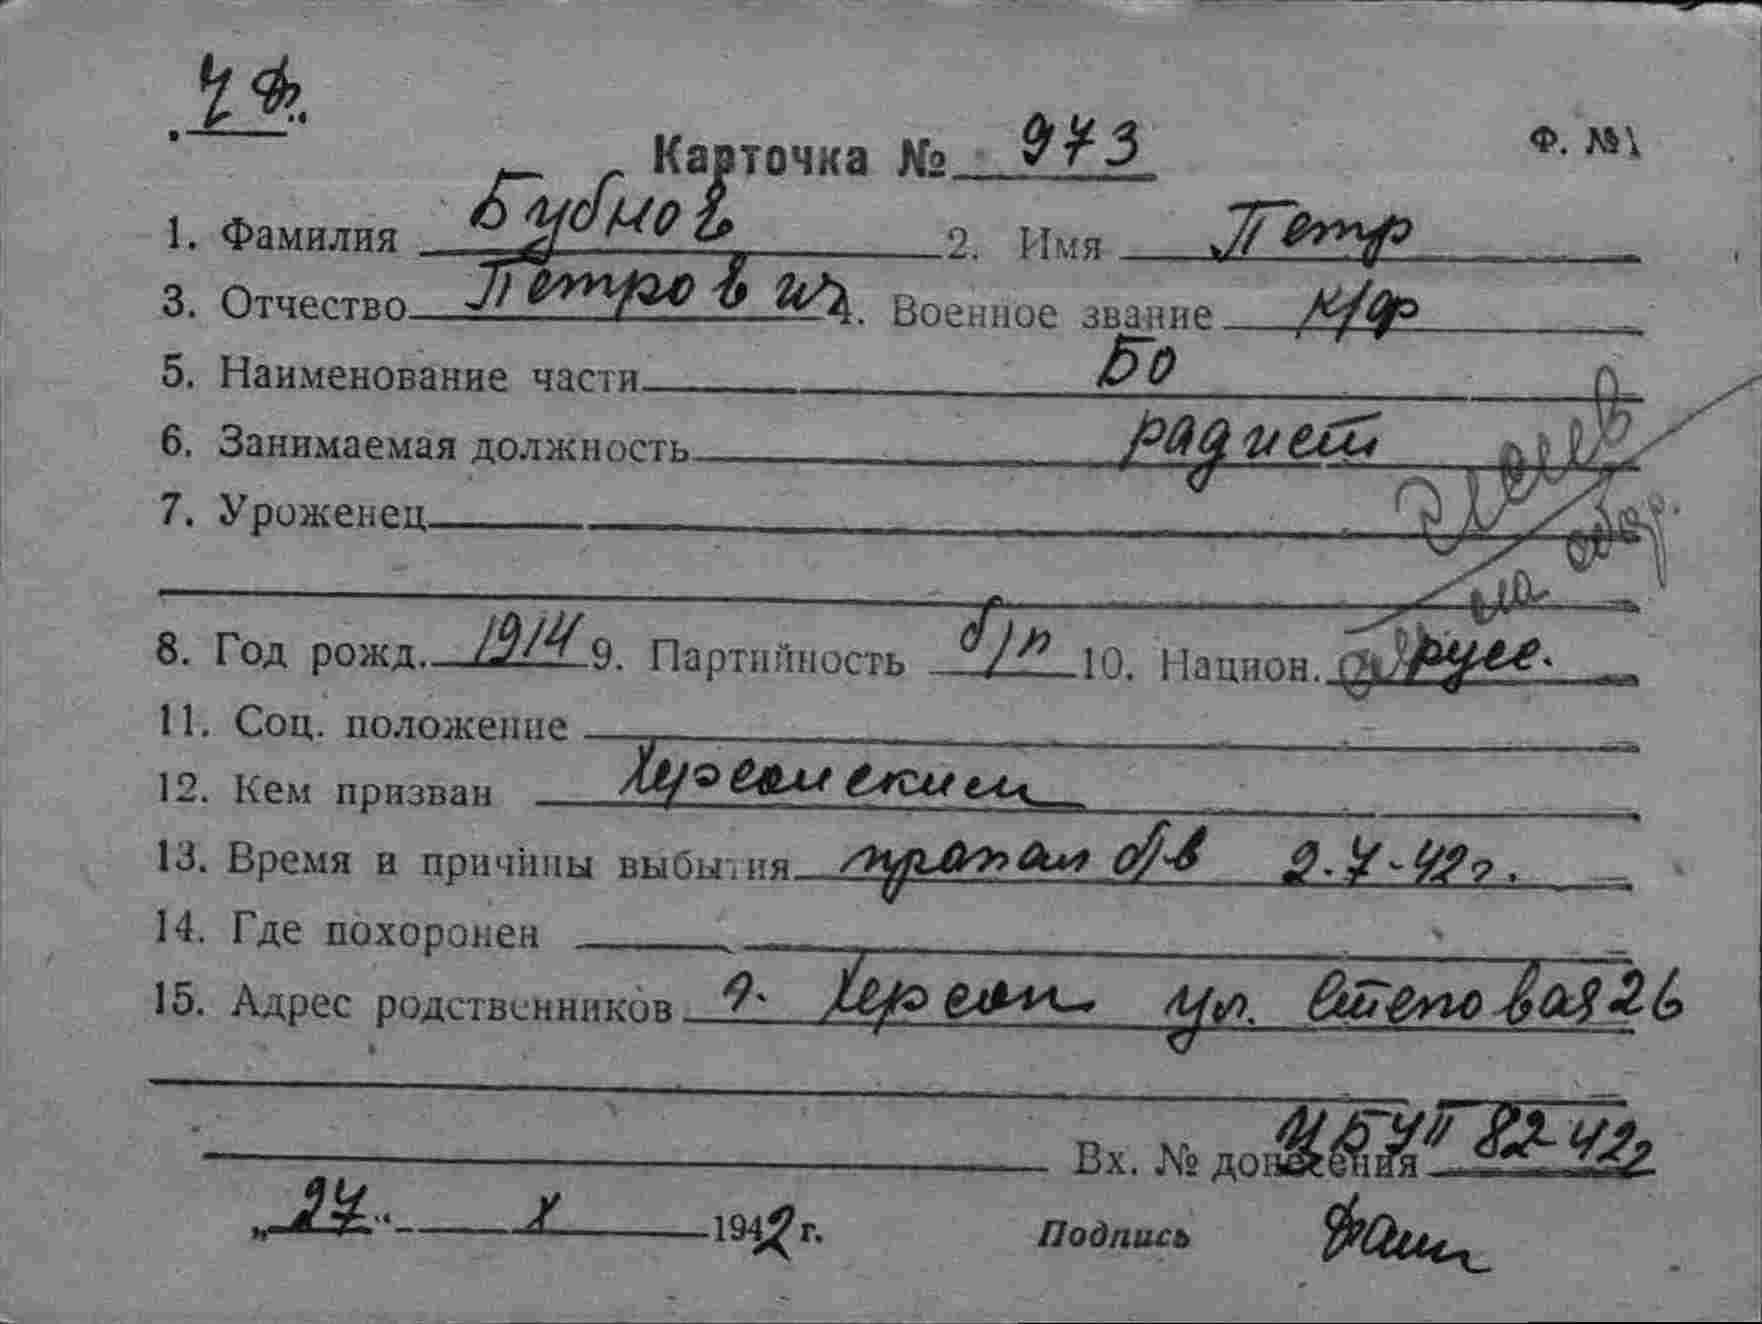 ЧФ.
Карточка № 973
Ф. №1
1. Фамилия Бубнов 2. Имя Петр
3. Отчество Петрович 4. Военное звание к/ф
5. Наименование части БО
6. Занимаемая должность радист
7. Уроженец
на обор.
8. Год рожд. 1914 9. Партийность б/п 10. Национ. русс.
11. Соц. положение
12. Кем призван Херсонским
13. Время и причины выбытия пропал б/в 2.7-42г.
14. Где похоронен
15. Адрес родственников г. Херсон ул. Степовая 26
Вх. № донесения 82 42г
„27“ X 1942 г. Подпись